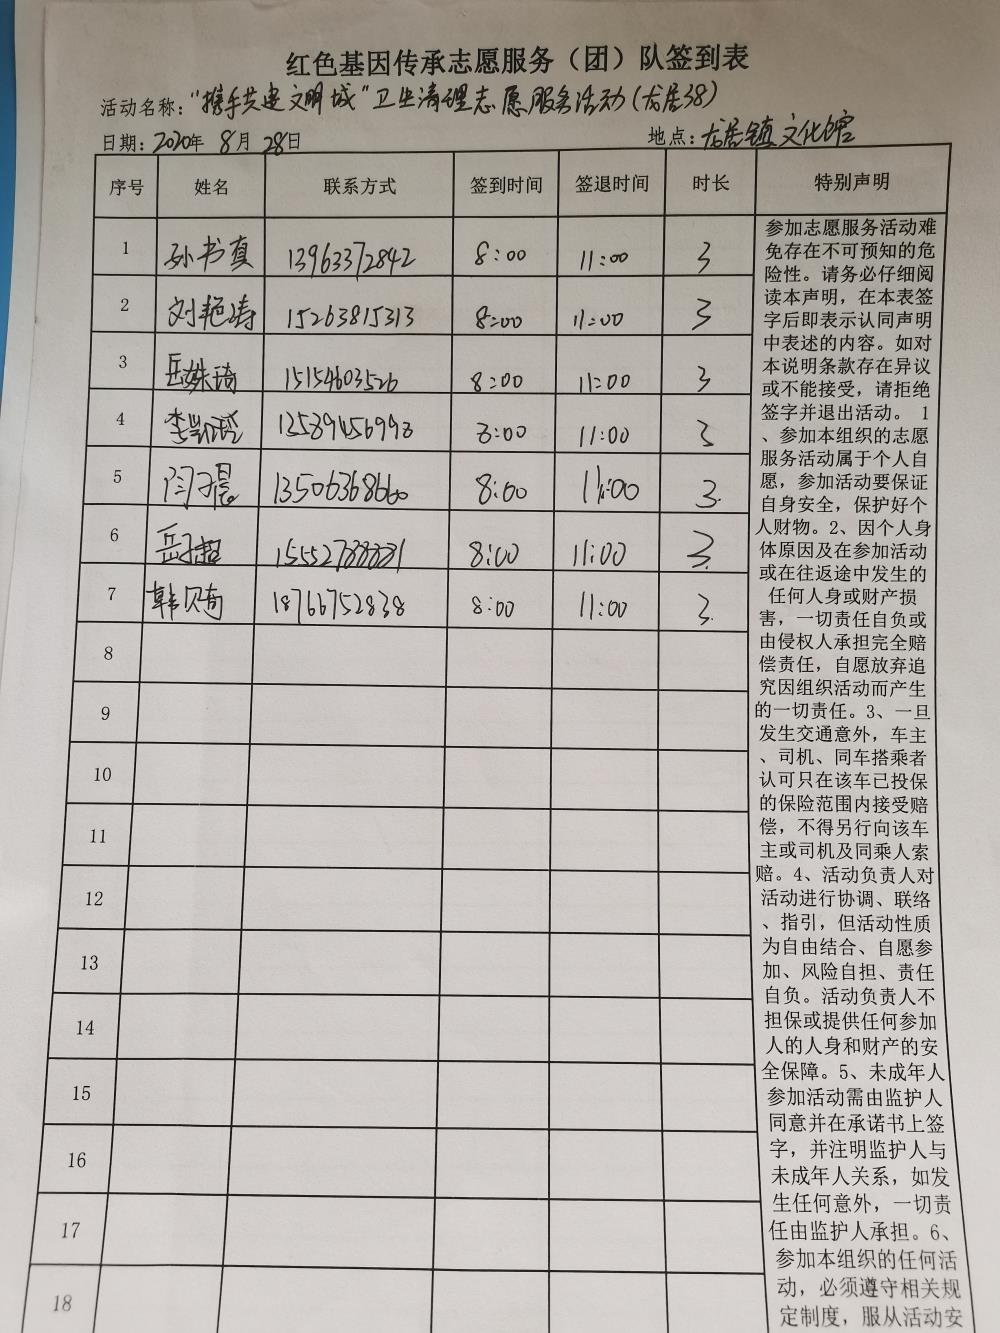 红色基因传承志愿服务（团）队签到表
活动名称：“携手共建文明城”卫生清理志愿服务活动（龙居38）
日期：2020年 8月 28日 地点：龙居镇文化馆
序号 姓名 联系方式 签到时间 签退时间 时长 特别声明
1 孙书真 13963372842 8:00 11:00 3
2 刘艳涛 15263815313 8:00 11:00 3
3 岳姝琦 15154603526 8:00 11:00 3
4 李 13589456993 8:00 11:00 3
5 闫子晨 13506368660 8:00 11:00 3
6 岳 8:00 11:00 3
7 韩贝奇 18766752838 8:00 11:00 3
8
9
10
11
12
13
14
15
16
17
18
参加志愿服务活动难
免存在不可预知的危
险性。请务必仔细阅
读本声明，在本表签
字后即表示认同声明
中表述的内容。如对
本说明条款存在异议
或不能接受，请拒绝
签字并退出活动。 1
、参加本组织的志愿
服务活动属于个人自
愿，参加活动要保证
自身安全，保护好个
人财物。2、因个人身
体原因及在参加活动
或在往返途中发生的
任何人身或财产损
害，一切责任自负或
由侵权人承担完全赔
偿责任，自愿放弃追
究因组织活动而产生
的一切责任。3、一旦
发生交通意外，车主
、司机、同车搭乘者
认可只在该车已投保
的保险范围内接受赔
偿，不得另行向该车
主或司机及同乘人索
赔。4、活动负责人对
活动进行协调、联络
、指引，但活动性质
为自由结合、自愿参
加、风险自担、责任
自负。活动负责人不
担保或提供任何参加
人的人身和财产的安
全保障。5、未成年人
参加活动需由监护人
同意并在承诺书上签
字，并注明监护人与
未成年人关系，如发
生任何意外，一切责
任由监护人承担。6、
参加本组织的任何活
动，必须遵守相关规
定制度，服从活动安